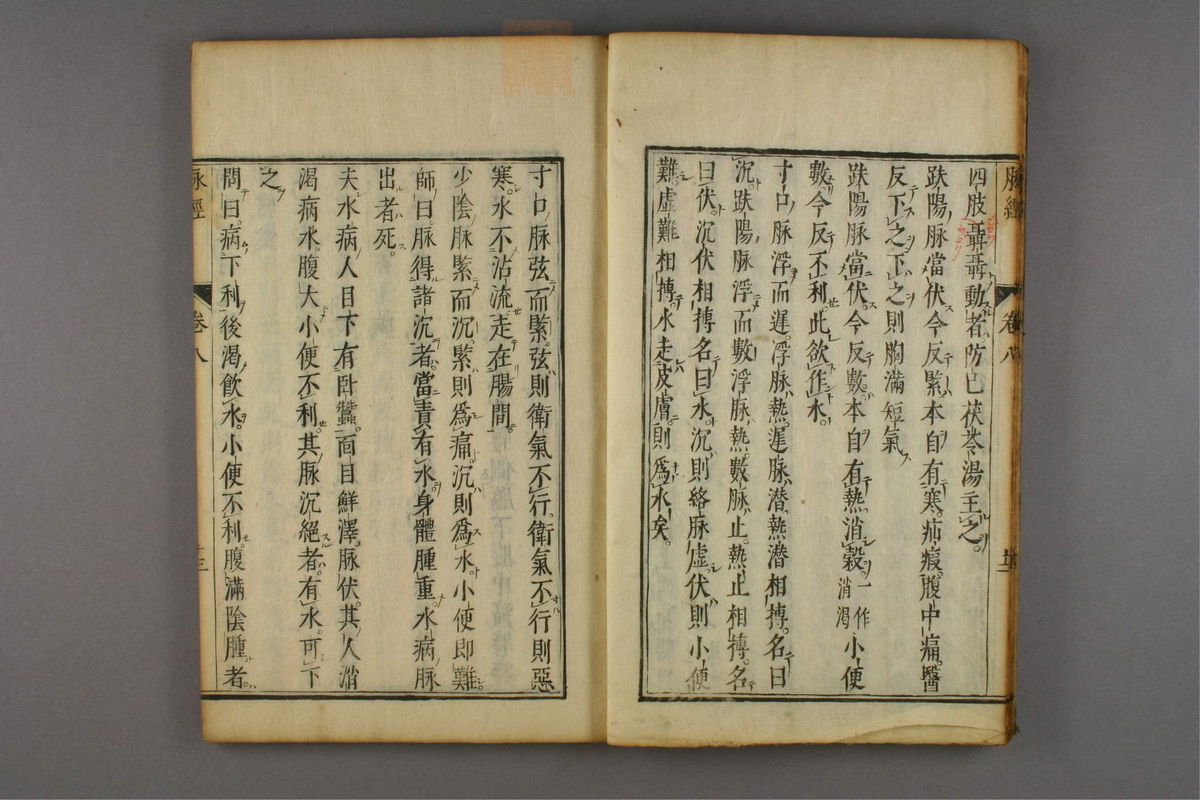 脉經
卷八
四肢聶聶動者防已茯苓湯主之
趺陽脉當伏今反緊本自有寒疝瘕腹中痛醫
反下之下之則胸滿短氣
趺陽脉當伏今反數本自有熱消穀一作消渴小便
數今反不利此欲作水
寸口脉浮而遲浮脉熱遲脉潜熱潜相搏名曰
沉趺陽脉浮而數浮脉熱數脉止熱止相搏名
曰伏沉伏相搏名曰水沉則絡脉虛伏則小便
難虛難相搏水走皮膚則爲水矣
寸口脉弦而緊弦則衛氣不行衛氣不行則惡
寒水不沾流走在腸間
少陰脉緊而沉緊則爲痛沉則爲水小便即難
師曰脉得諸沉者當責有水身體腫重水病脉
出者死
夫水病人目下有卧蠶面目鮮澤脉伏其人消
渴病水腹大小便不利其脉沉絕者有水可下
之
問曰病下利後渴飲水小便不利腹滿陰腫者
脉經
卷八
十三